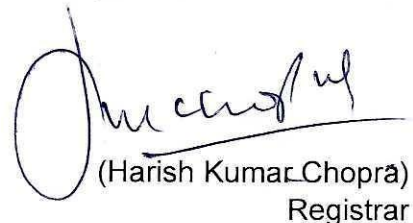 (Harish Kumar Chopra)
Registrar